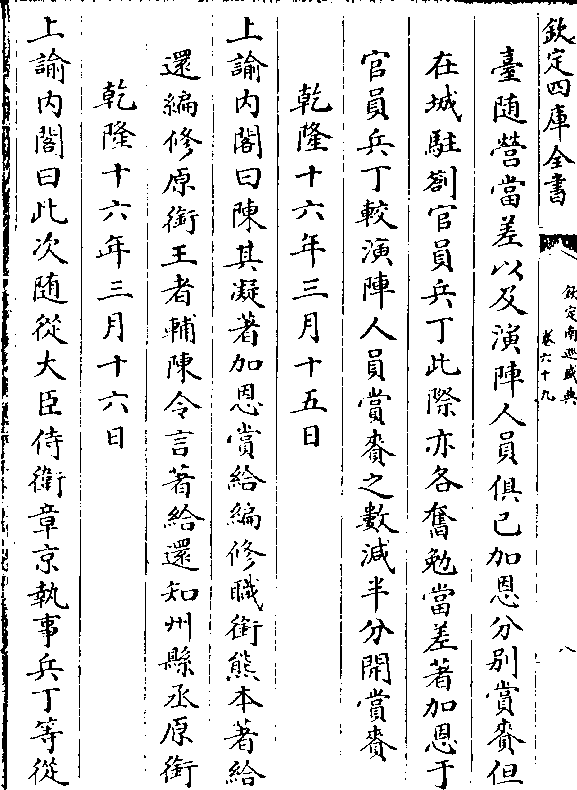 欽定四庫全書
欽定南巡盛典
卷六十九
八
臺随營當差以及演陣人員俱已加恩分别賞賚但
在城駐劄官員兵丁此際亦各奮勉當差著加恩于
官員兵丁較演陣人員賞賚之數減半分開賞賚
乾隆十六年三月十五日
上諭内閣曰陳其凝著加恩賞給編修職銜熊本著給
還編修原銜王者輔陳令言著給還知州縣丞原銜
乾隆十六年三月十六日
上諭内閣曰此次随從大臣侍衛章京執事兵丁等從